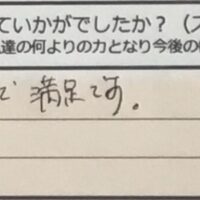 ていかがでしたか？（ス
達の何よりの力となり今後の
で 満足です。